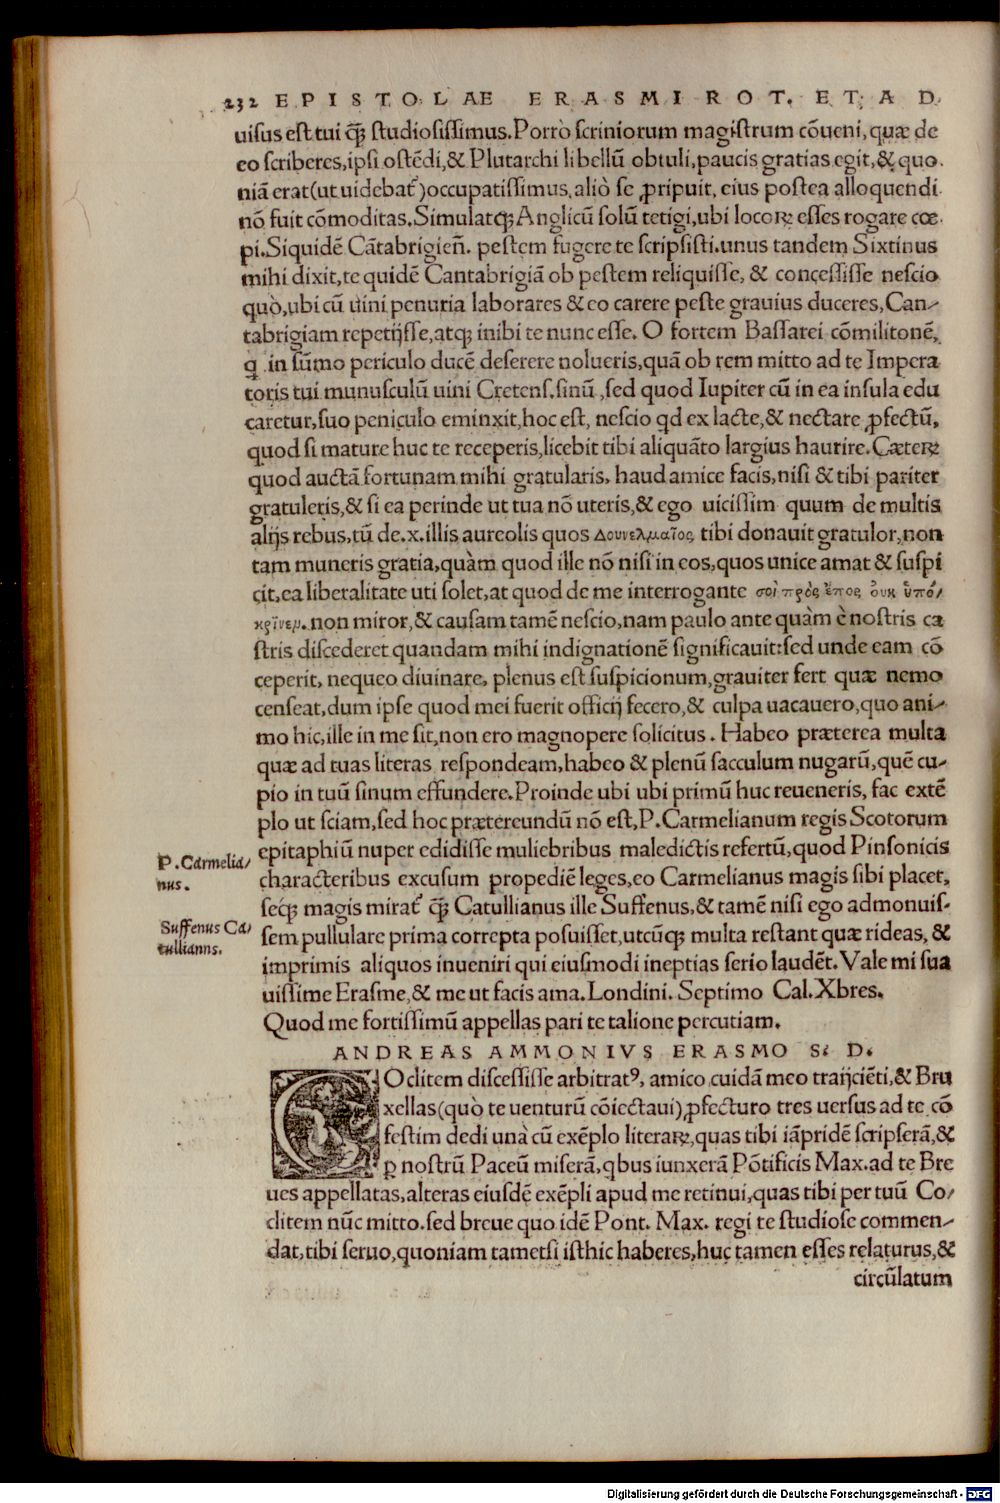 232 EPISTOLAE ERASMI ROT. ET AD
uisus est tui q̃ꝫ studiosissimus. Porrò scriniorum magistrum cõueni, quæ de
eo scriberes, ipsi ostẽdi, & Plutarchi libellũ obtuli, paucis gratias egit, & quo
niã erat (ut uidebat᷑) occupatissimus, aliò se ꝓripuit, eius postea alloquendi
nõ fuit cõmoditas. Simulatqꝫ Anglicũ solũ tetigi, ubi locoꝝ esses rogare cœ
pi. Siquidẽ Cãtabrigieñ. pestem fugere te scripsisti. unus tandem Sixtinus
mihi dixit, te quidẽ Cantabrigiã ob pestem reliquisse, & concessisse nescio
quò, ubi cũ uini penuria laborares & eo carere peste grauius duceres, Can-
tabrigiam repetijsse, atqꝫ inibi te nunc esse. O fortem Bassarei cõmilitonẽ,
q in sũmo periculo ducẽ deserere nolueris, quã ob rem mitto ad te Impera
toris tui munusculũ uini Cretens. sinũ, sed quod Iupiter cũ in ea insula edu
caretur, suo peniculo eminxit, hoc est, nescio qd ex lacte, & nectare ꝓfectũ,
quod si mature huc te receperis, licebit tibi aliquãto largius haurire. Cæteꝝ
quod auctã fortunam mihi gratularis, haud amice facis, nisi & tibi pariter
gratuleris, & si ea perinde ut tua nõ uteris, & ego uicissim quum de multis
alijs rebus, tũ de .x. illis aureolis quos Δουνελμαῖος tibi donauit gratulor, non
tam muneris gratia, quàm quod ille nõ nisi in eos, quos unice amat & suspi
cit, ea liberalitate uti solet, at quod de me interrogante σοὶ πρὸς ἔπος οὐκ ὑπό/
κρίνεμ. non miror, & causam tamẽ nescio, nam paulo ante quàm è nostris ca
stris discederet quandam mihi indignationẽ significauit: sed unde eam cõ
ceperit, nequeo diuinare, plenus est suspicionum, grauiter fert quæ nemo
censeat, dum ipse quod mei fuerit officij fecero, & culpa uacauero, quo ani-
mo hic, ille in me sit, non ero magnopere solicitus. Habeo præterea multa
quæ ad tuas literas respondeam, habeo & plenũ sacculum nugarũ, quẽ cu-
pio in tuũ sinum effundere. Proinde ubi ubi primũ huc reueneris, fac extẽ
plo ut sciam, sed hoc prætereundũ nõ est, P. Carmelianum regis Scotorum
epitaphiũ nuper edidisse muliebribus maledictis refertũ, quod Pinsonicis
characteribus excusum propediẽ leges, eo Carmelianus magis sibi placet,
seqꝫ magis mirat᷑ q̃ꝫ Catullianus ille Suffenus, & tamẽ nisi ego admonuis-
sem pullulare prima correpta posuisset, utcũqꝫ multa restant quæ rideas, &
imprimis aliquos inueniri qui eiusmodi ineptias serio laudẽt. Vale mi sua
uissime Erasme, & me ut facis ama. Londini. Septimo Cal. Xbres.
Quod me fortissimũ appellas pari te talione percutiam.
P. Carmelia/
nus.
Suffenus Ca/
tullianns.
ANDREAS AMMONIVS ERASMO S. D.
COclitem discessisse arbitratꝰ, amico cuidã meo traijciẽti, & Bru
xellas (quò te uenturũ cõiectaui) ꝓfecturo tres uersus ad te cõ
festim dedi unà cũ exẽplo literaꝝ, quas tibi iãpridẽ scripserã, &
ꝑ nostrũ Paceũ miserã, qbus iunxerã Põtificis Max. ad te Bre
ues appellatas, alteras eiusdẽ exẽpli apud me retinui, quas tibi per tuũ Co/
clitem nũc mitto. sed breue quo idẽ Pont. Max. regi te studiose commen-
dat, tibi seruo, quoniam tametsi isthic haberes, huc tamen esses relaturus, &
circũlatum
Digitalisierung gefördert durch die Deutsche Forschungsgemeinschaft - DFG